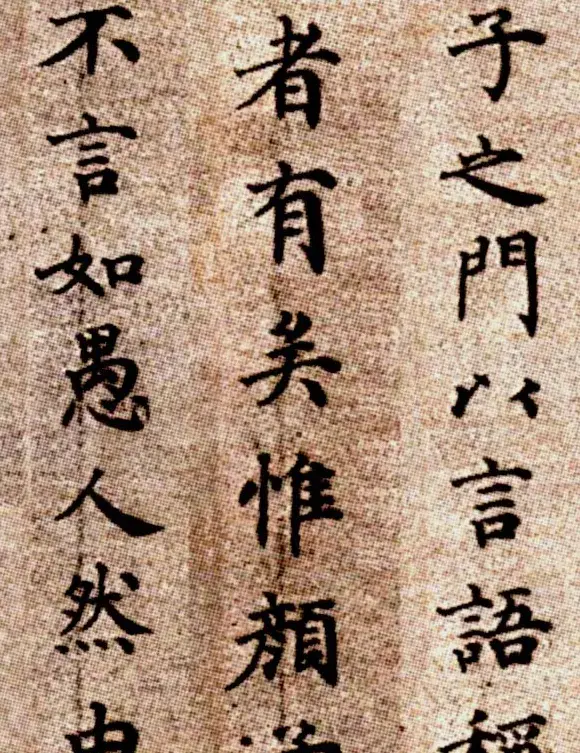 子之門以言語
者有矣惟顏
不言如愚人然